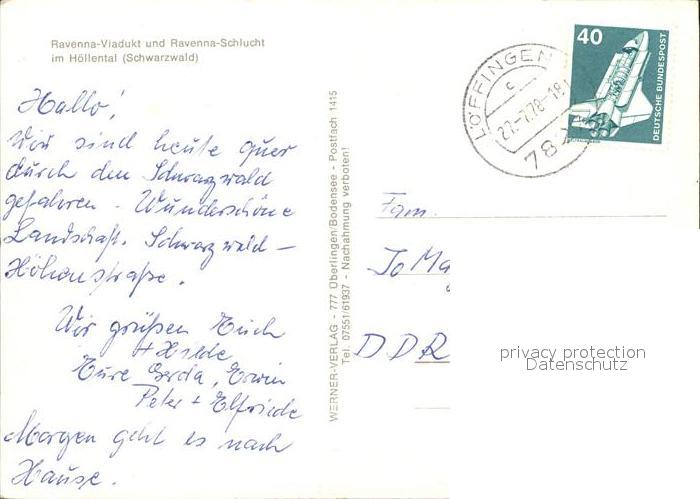 Ravenna-Viadukt und Ravenna-Schlucht
im Höllental (Schwarzwald)
Hallo!
Wir sind heute quer
durch den Schwarzwald
gefahren. Wunderschöne
Landschaft. Schwarzwald-
Höhenstraße.
Wir grüßen Euch
+ Hilde
Eure Gerda, Erwin
Peter + Elfriede
Morgen geht es nach
Hause.
WERNER-VERLAG - 777 Überlingen/Bodensee - Postfach 1415
Tel. 07551/61937 - Nachahmung verboten!
LÖFFINGEN
c
27.-7.78-18
78
40
DEUTSCHE BUNDESPOST
Fam.
Jo Ma
DDR
privacy protection
Datenschutz